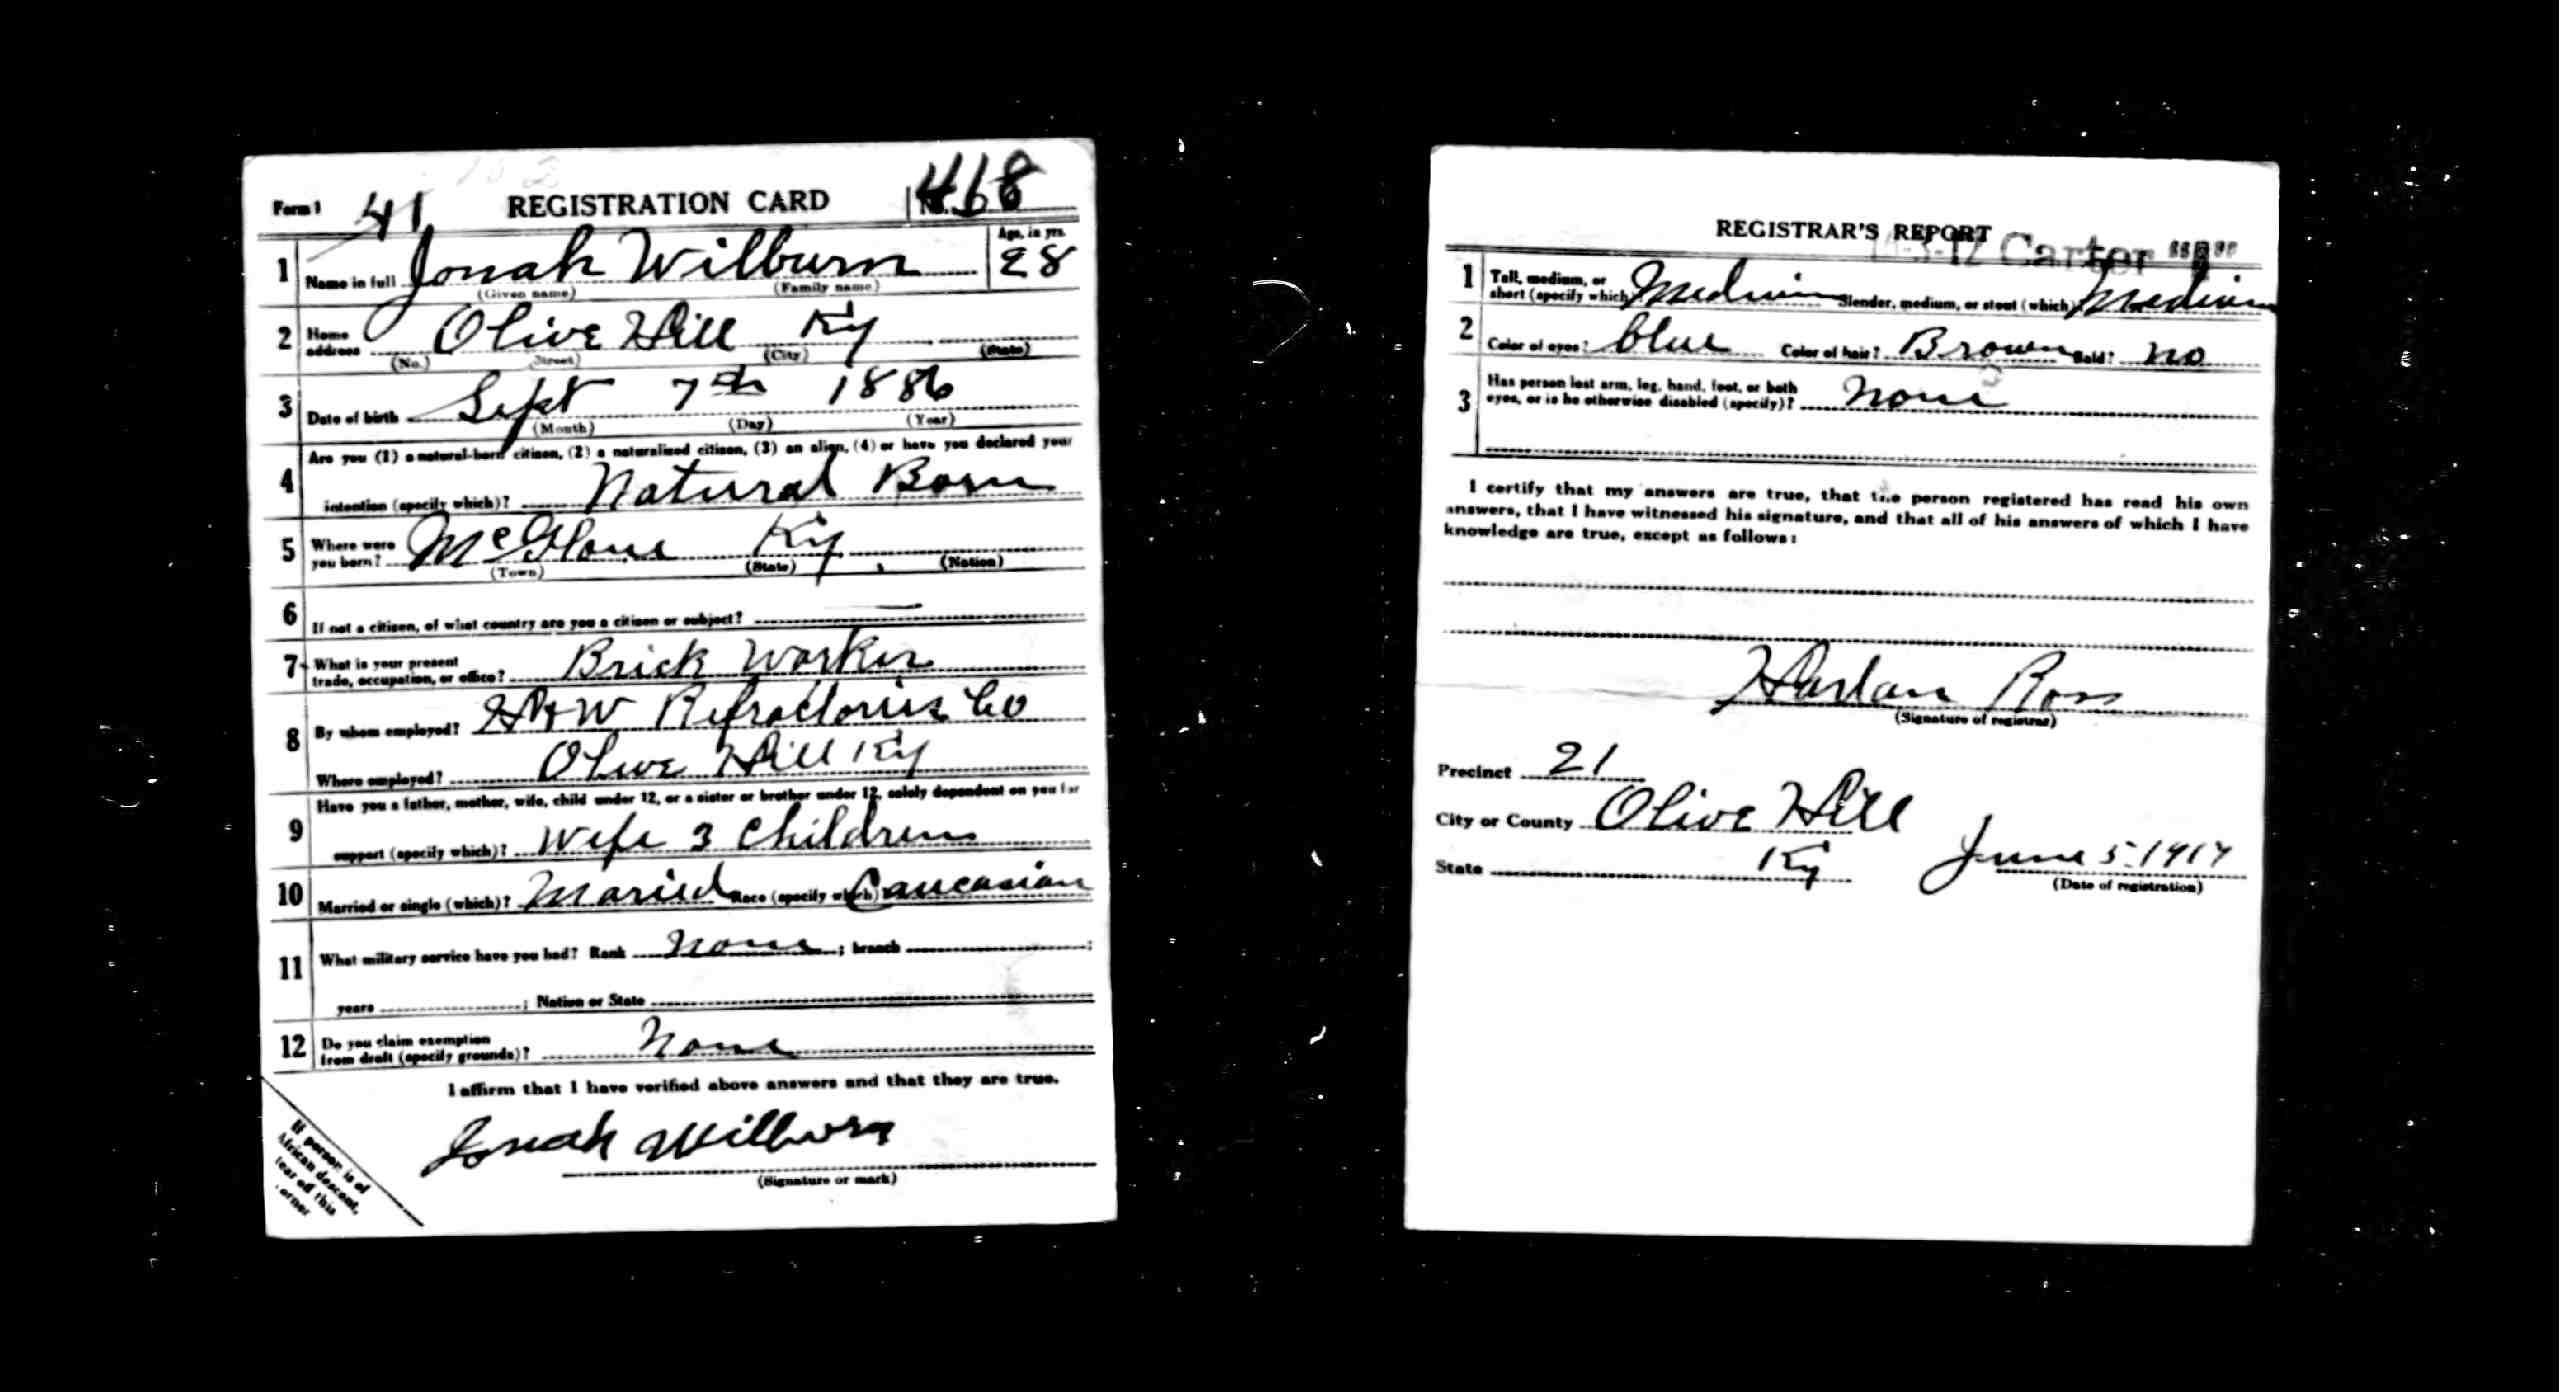 Form 1 41 REGISTRATION CARD No. 468
1 Name in full Jonah Wilburn Age, in yrs. 28
(Given name) (Family name)
2 Home address Olive Hill Ky
(No.) (Street) (City) (State)
3 Date of birth Sept 7th 1886
(Month) (Day) (Year)
Are you (1) a natural-born citizen, (2) a naturalized citizen, (3) an alien, (4) or have you declared your
4 intention (specify which)? Natural Born
5 Where were you born? McGlone Ky
(Town) (State) (Nation)
6 If not a citizen, of what country are you a citizen or subject? —
7 What is your present trade, occupation, or office? Brick Worker
8 By whom employed? H & W Refractories Co
Where employed? Olive Hill Ky
Have you a father, mother, wife, child under 12, or a sister or brother under 12, solely dependent on you for
9 support (specify which)? Wife 3 Children
10 Married or single (which)? Maried Race (specify which)? Caucasian
11 What military service have you had? Rank None ; branch ;
years ; Nation or State
12 Do you claim exemption from draft (specify grounds)? None
I affirm that I have verified above answers and that they are true.
Jonah Wilburn
(Signature or mark)
If person is of
African descent,
tear off this
corner
REGISTRAR'S REPORT
Carter
1 Tall, medium, or short (specify which)? Medium Slender, medium, or stout (which)? Medium
2 Color of eyes? blue Color of hair? Brown Bald? no
3 Has person lost arm, leg, hand, foot, or both
eyes, or is he otherwise disabled (specify)? None
I certify that my answers are true, that the person registered has read his own
answers, that I have witnessed his signature, and that all of his answers of which I have
knowledge are true, except as follows:
Harlan Ross
(Signature of registrar)
Precinct 21
City or County Olive Hill
State Ky June 5-1917
(Date of registration)